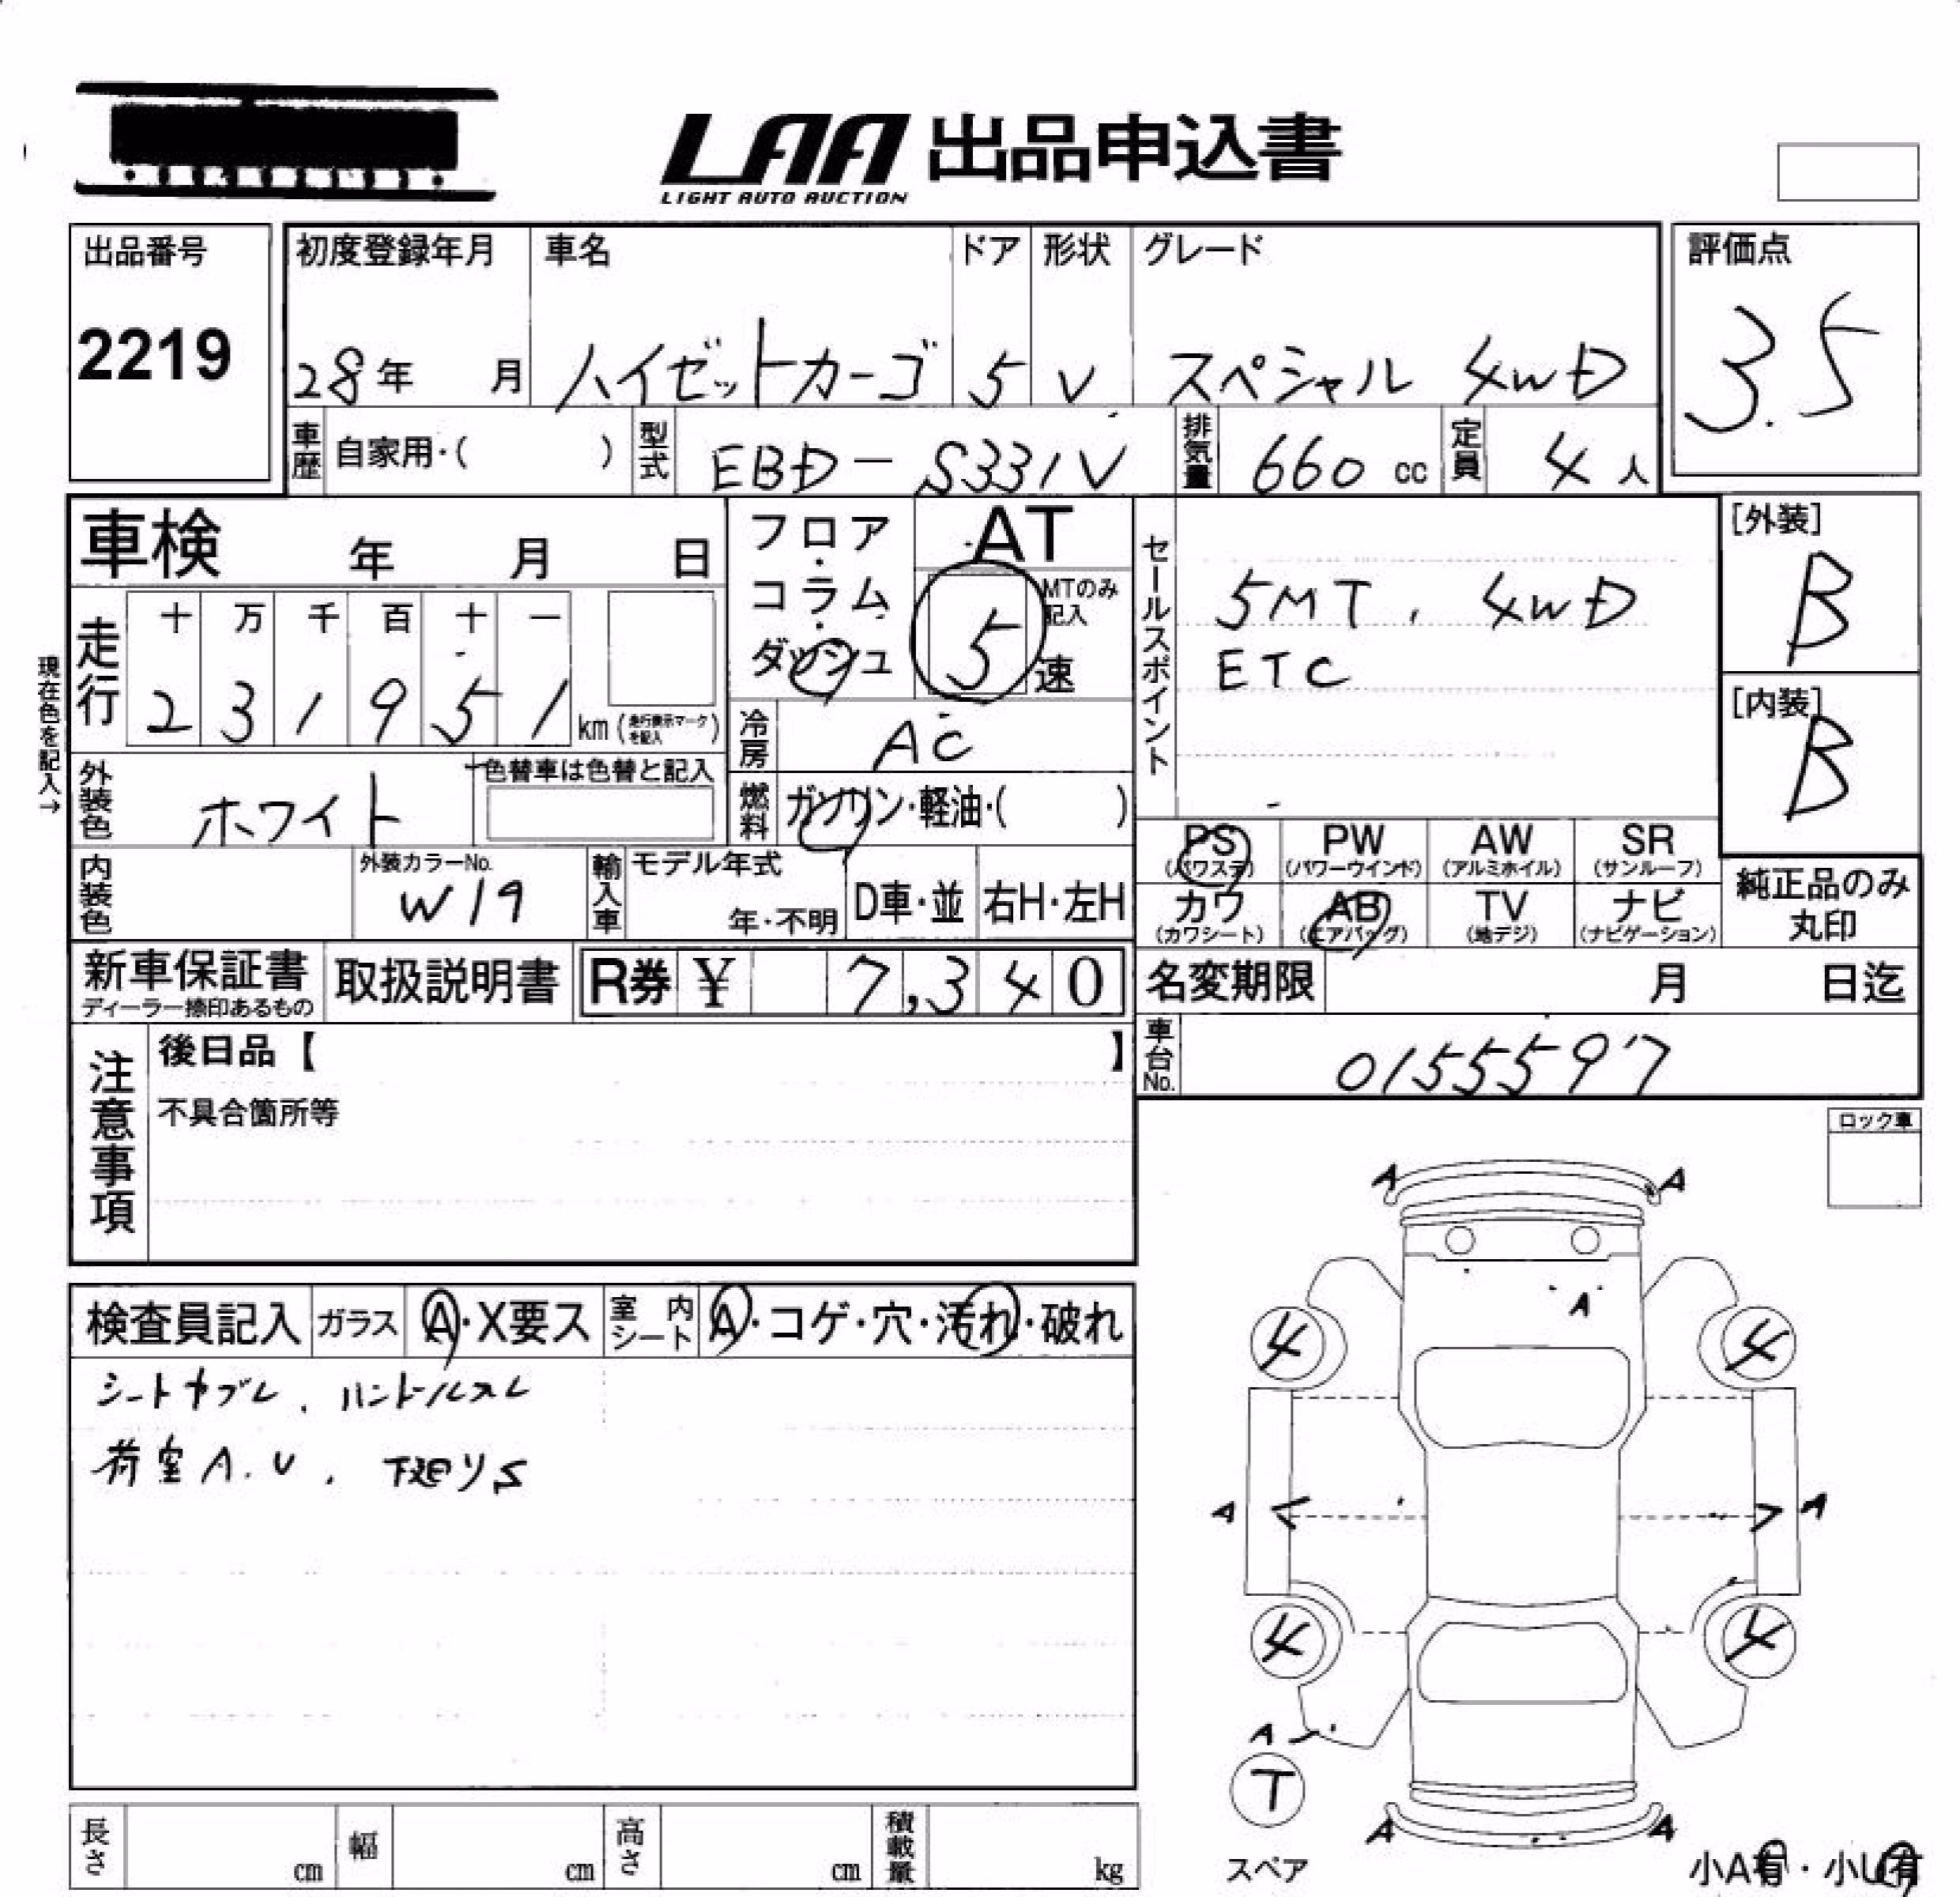 LAA 出品申込書
LIGHT AUTO AUCTION
出品番号
2219
初度登録年月
28年 月
車名
ハイゼットカーゴ
ドア
5
形状
V
グレード
スペシャル 4WD
評価点
3.5
車歴 自家用・( )
型式 EBD-S331V
排気量 660 cc
定員 4 人
車検 年 月 日
フロア・コラム・ダッシュ
AT
MTのみ記入
5 速
セールスポイント
5MT, 4WD
ETC
[外装]
B
[内装]
B
現在色を記入→
走行
十 万 千 百 十 一
2 3 1 9 5 1 km (走行表示マークを記入)
冷房 AC
外装色 ホワイト
色替車は色替と記入
燃料 ガソリン・軽油・( )
PS (パワステ)
PW (パワーウインド)
AW (アルミホイル)
SR (サンルーフ)
内装色
外装カラーNo.
W19
輸入車 モデル年式
年・不明
D車・並
右H・左H
カワ (カワシート)
AB (エアバッグ)
TV (地デジ)
ナビ (ナビゲーション)
純正品のみ
丸印
新車保証書
ディーラー捺印あるもの
取扱説明書
R券 ¥ 7,340
名変期限 月 日迄
車台No. 0155597
注意事項
後日品【 】
不具合箇所等
ロック車
検査員記入 ガラス A・X要ス 室内シート A・コゲ・穴・汚れ・破れ
シートヤブレ、ハンドルスレ
荷室A.U、下廻りS
A A
A
4 4
A A
4 4
A
T
スペア
A A
小A有・小U有
長さ cm
幅 cm
高さ cm
積載量 kg